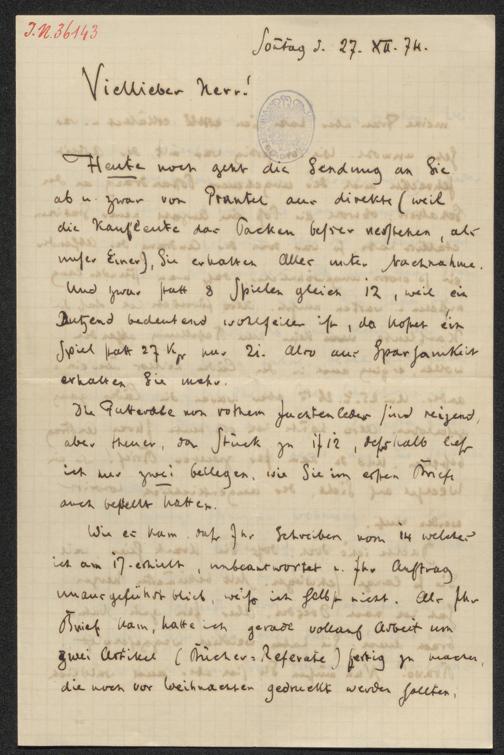 I.N. 36143
Sontag d. 27. XII. 74.
Viellieber Herr!
Heute noch geht die Sendung an Sie
ab u. zwar von Prantel aus direkte (weil
die Kaufleute das Packen besser verstehen, als
unser Einer), Sie erhalten Alles unter Nachnahme.
Und zwar statt 8 Spielen gleich 12, weil ein
Dutzend bedeutend wohlfeiler ist, da kostet ein
Spiel statt 27 Kr nur 21. Also aus Sparsamkeit
erhalten Sie mehr.
Die Futterale von rothem Juchtenleder sind reizend,
aber theuer, das Stück zu 1 f 12, desshalb liess
ich nur zwei beilegen, wie Sie im ersten Briefe
auch bestellt hatten.
Wie es kam, dass Ihr Schreiben vom 14 welches
ich am 17. erhielt, unbeantwortet u. Ihr Auftrag
unausgeführt blieb, weiss ich selbst nicht. Als Ihr
Brief kam, hatte ich gerade vollauf Arbeit um
zwei Artikel (Bücher-Referate) fertig zu machen,
die noch vor Weihnachten gedruckt werden sollten.